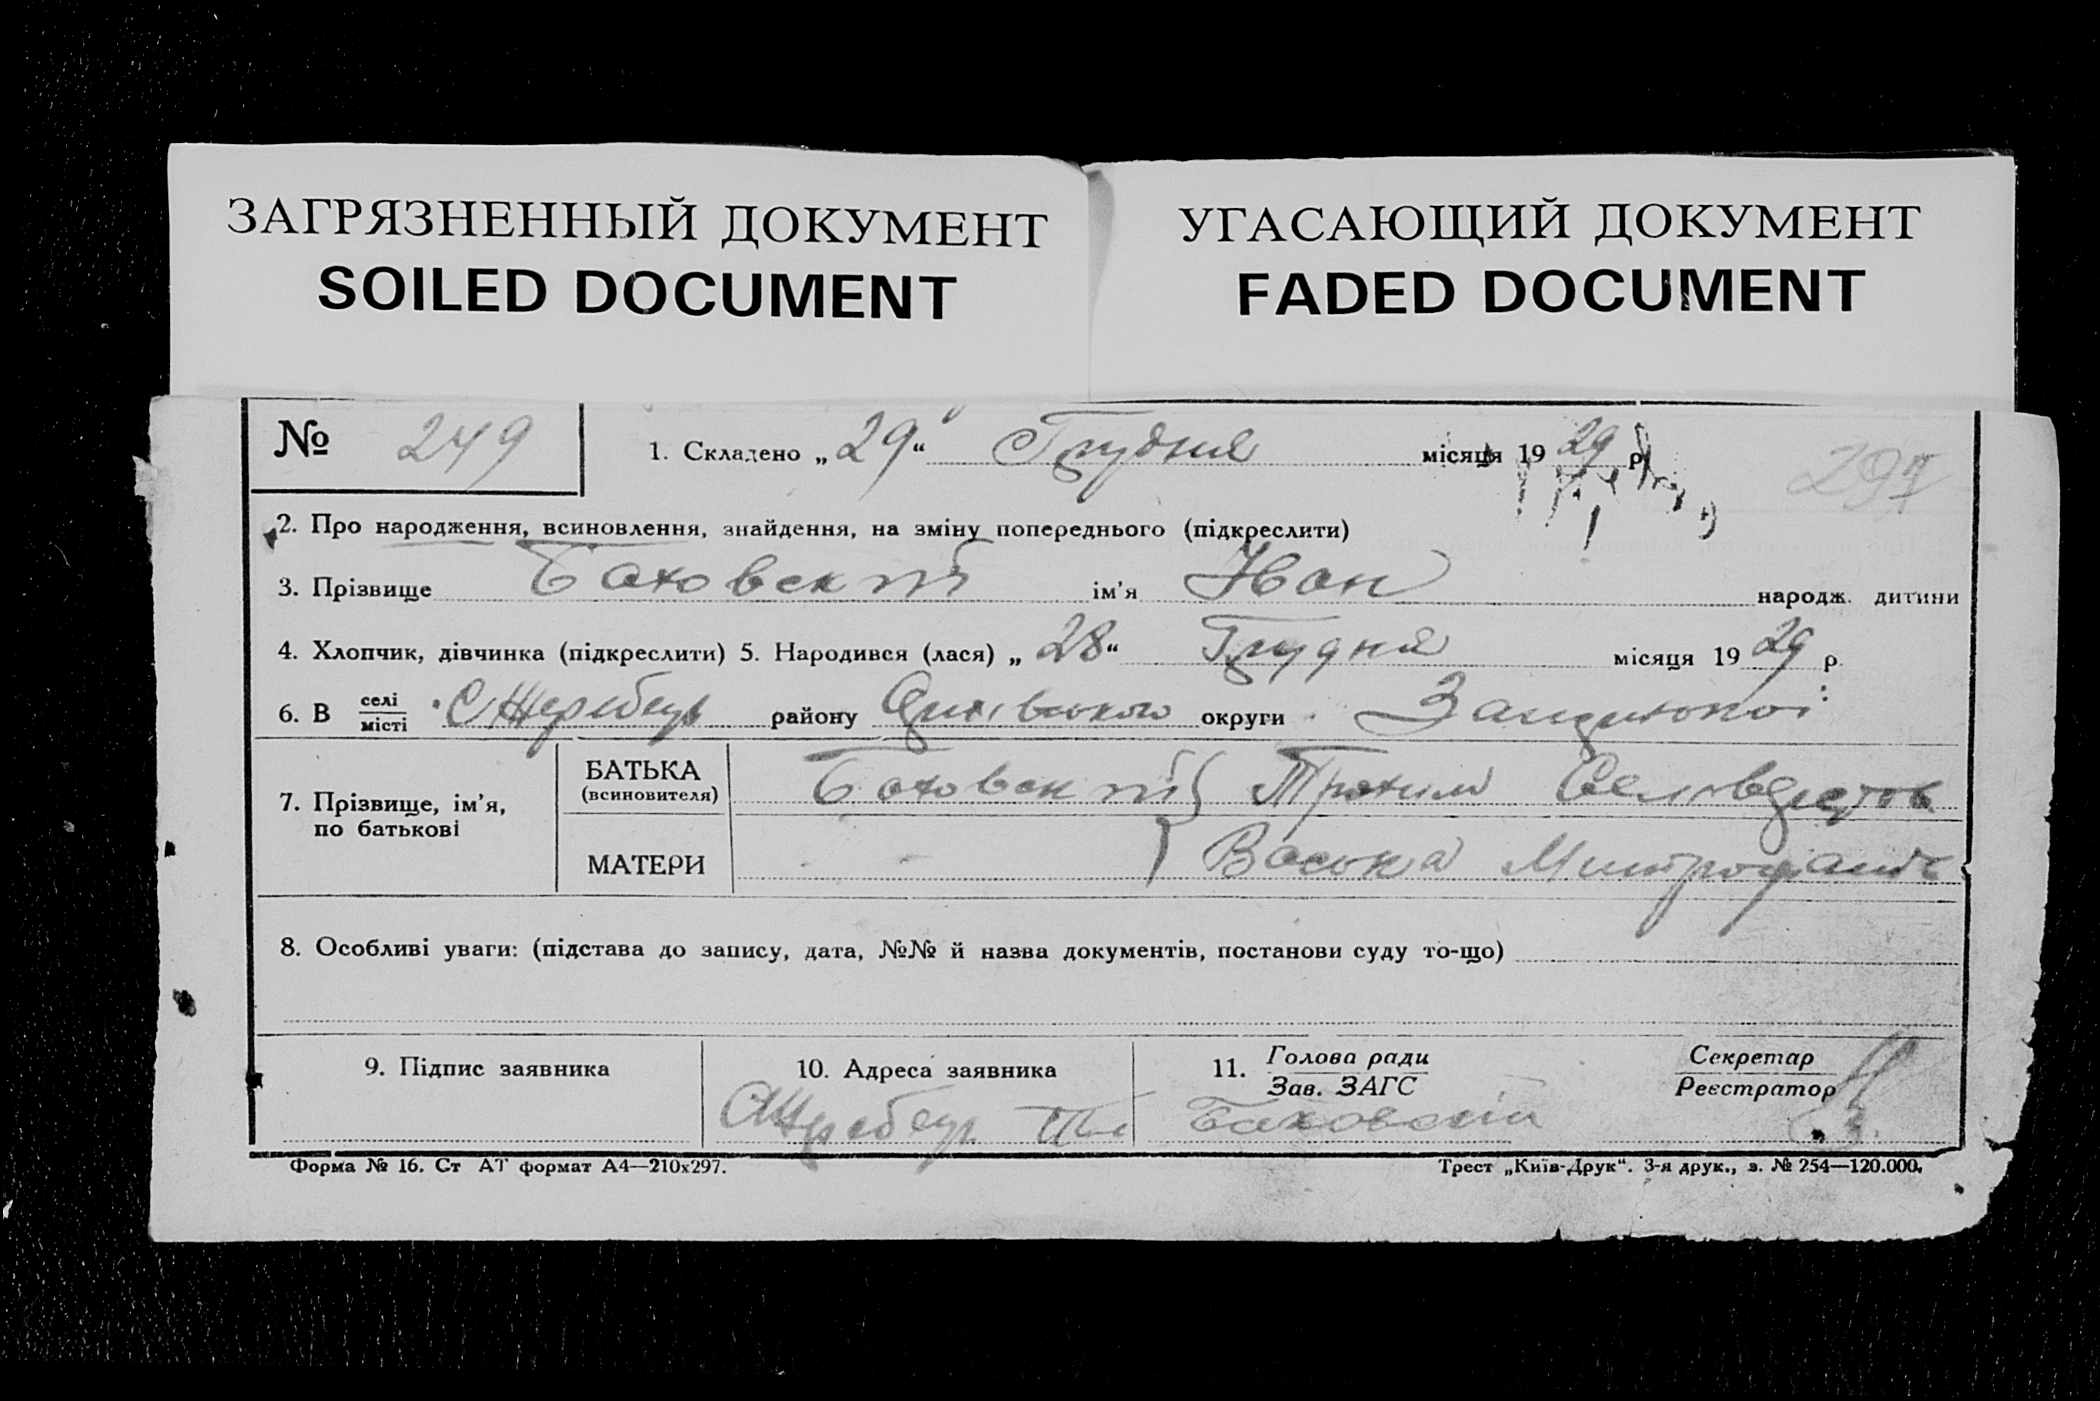 ЗАГРЯЗНЕННЫЙ ДОКУМЕНТ
SOILED DOCUMENT
УГАСАЮЩИЙ ДОКУМЕНТ
FADED DOCUMENT
№ 249
1. Складено „29“ Грудня місяця 1929 р.
2. Про народження, всиновлення, знайдення, на зміну попереднього (підкреслити)
3. Прізвище Баховский ім’я Иван народж. дитини
4. Хлопчик, дівчинка (підкреслити) 5. Народився (лася) „28“ Грудня місяця 1929 р.
6. В селі / місті С Жеребець району округи
7. Прізвище, ім’я, по батькові
БАТЬКА (всиновителя) Баховский Трохим
МАТЕРИ Васька Митрофанів
8. Особливі уваги: (підстава до запису, дата, №№ й назва документів, постанови суду то-що)
9. Підпис заявника
10. Адреса заявника
С Жеребець
11. Голова ради / Зав. ЗАГС
Баховский
Секретар / Реєстратор
Форма № 16. Ст АТ формат А4—210х297.
Трест „Київ-Друк“. 3-я друк., з. № 254—120.000.